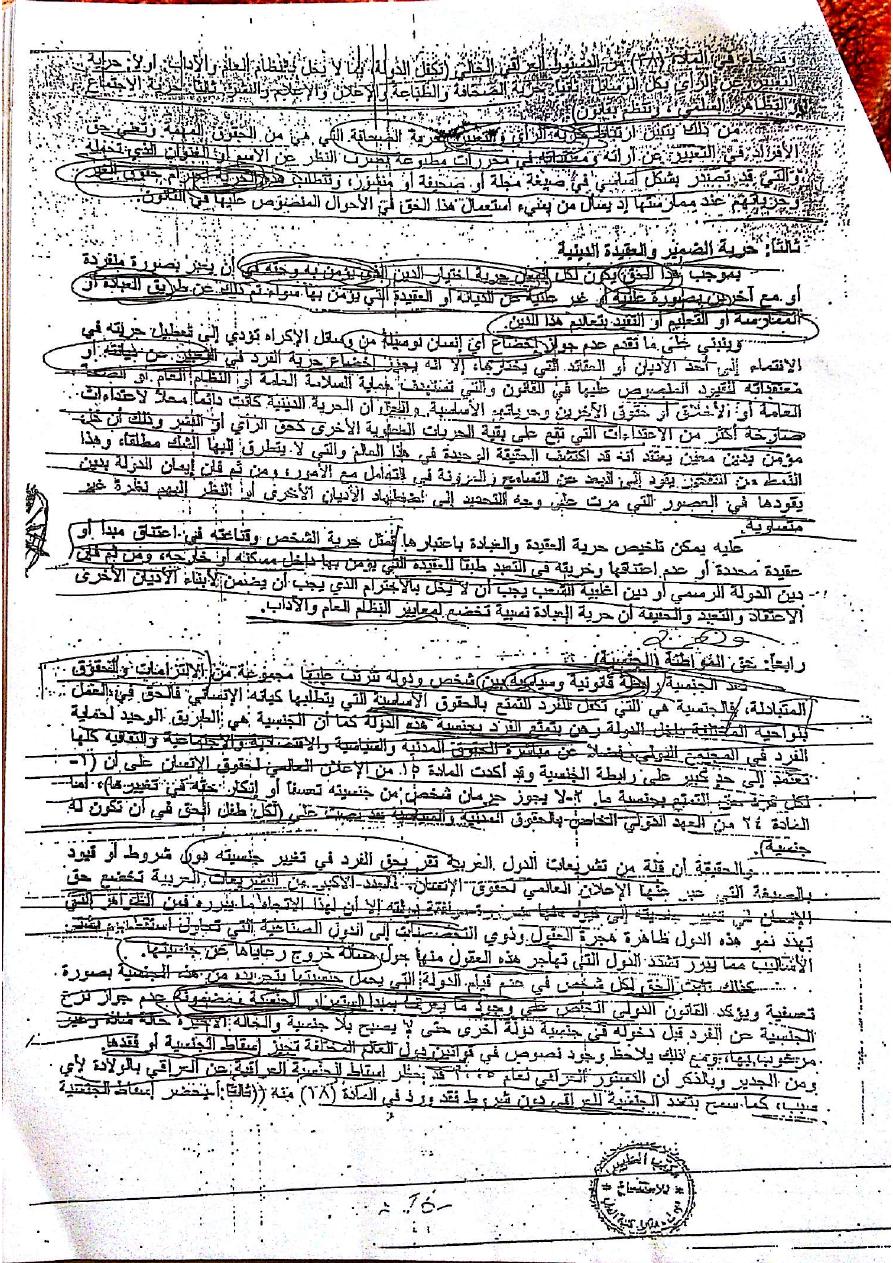 وقد جاء في المادة (٣٨) من الدستور العراقي الحالي (تكفل الدولة، بما لا يخل بالنظام العام والآداب: أولاً: حرية
التعبير عن الرأي بكل الوسائل. ثانياً: حرية الصحافة والطباعة والإعلان والإعلام والنشر. ثالثاً: حرية الاجتماع
والتظاهر السلمي، وتنظم بقانون)
من ذلك يتبين ارتباط حرية الرأي والتعبير بحرية الصحافة التي هي من الحقوق المهمة وتعني حق
الأفراد في التعبير عن آرائه ومعتقداته في محررات مطبوعة بصرف النظر عن الاسم أو العنوان الذي تحمله
والتي قد تصدر بشكل أساسي في صيغة مجلة أو صحيفة أو منشور، وتتطلب هذه الحرية احترام حقوق الغير
وحرياتهم عند ممارستها إذ يسأل من يسيء استعمال هذا الحق في الأحوال المنصوص عليها في القانون.
ثالثاً: حرية الضمير والعقيدة الدينية
بموجب هذا الحق يكون لكل حرية اختيار الدين الذي يؤمن به وحقه في أن يعبر بصورة منفردة
أو مع آخرين بصورة علنية أو غير علنية عن الديانة أو العقيدة التي يؤمن بها سواء تم ذلك عن طريق العبادة أو
الممارسة أو التعليم أو التقيد بتعاليم هذا الدين.
وينبني على ما تقدم عدم جواز إخضاع أي إنسان لوسيلة من وسائل الإكراه تؤدي إلى تعطيل حريته في
الانتماء إلى أحد الأديان أو العقائد التي يختارها، إلا أنه يجوز إخضاع حرية الفرد في التعبير عن ديانته أو
معتقداته للقيود المنصوص عليها في القانون والتي تستهدف حماية السلامة العامة أو النظام العام أو الصحة
العامة أو الأخلاق أو حقوق الآخرين وحرياتهم الأساسية. والحق أن الحرية الدينية كانت دائماً محلاً لاعتداءات
صارخة أكثر من الاعتداءات التي تقع على بقية الحريات الفكرية الأخرى كحق الرأي أو النشر وذلك أن كل
مؤمن بدين معين يعتقد أنه قد اكتشف الحقيقة الوحيدة في هذا العالم والتي لا يتطرق إليها الشك مطلقاً، وهذا
النمط من التفكير يقود إلى البعد عن التسامح والمرونة في التعامل مع الأمور، ومن ثم فإن إيمان الدولة بدين
يقودها في العصور التي مرت على وجه التحديد إلى اضطهاد الأديان الأخرى أو النظر إليهم نظرة غير
متساوية.
عليه يمكن تلخيص حرية العقيدة والعبادة باعتبارها تمثل حرية الشخص وقناعته في اعتناق مبدأ أو
عقيدة محددة أو عدم اعتناقها وحريته في التعبد طبقاً للعقيدة التي يؤمن بها داخل مسكنه أو خارجه، ومن ثم فإن
دين الدولة الرسمي أو دين أغلبية الشعب يجب أن لا يخل بالاحترام الذي يجب أن يضمن لأبناء الأديان الأخرى
الاعتقاد والتعبد والحقيقة أن حرية العبادة نسبية تخضع لمعايير النظام العام والآداب.
رابعاً: حق المواطنة (الجنسية)
تعد الجنسية رابطة قانونية وسياسية بين شخص ودولة تترتب عليها مجموعة من الالتزامات والحقوق
المتبادلة، فالجنسية هي التي تكفل للفرد التمتع بالحقوق الأساسية التي يتطلبها كيانه الإنساني فالحق في العمل
بنواحيه المختلفة داخل الدولة رهن بتمتع الفرد بجنسية هذه الدولة كما أن الجنسية هي الطريق الوحيد لحماية
الفرد في المجتمع الدولي فضلاً عن مباشرة الحقوق المدنية والسياسية والاقتصادية والاجتماعية والثقافية كلها
تعتمد إلى حد كبير على رابطة الجنسية وقد أكدت المادة ١٥ من الإعلان العالمي لحقوق الإنسان على أن (١-
لكل فرد حق التمتع بجنسية ما. ٢-لا يجوز حرمان شخص من جنسيته تعسفاً أو إنكار حقه في تغييرها)، أما
المادة ٢٤ من العهد الدولي الخاص بالحقوق المدنية والسياسية فقد نصت على (لكل طفل الحق في أن تكون له
جنسية).
والحقيقة أن قلة من تشريعات الدول الغربية تقر بحق الفرد في تغيير جنسيته بدون شروط أو قيود
بالصيغة التي عبر عنها الإعلان العالمي لحقوق الإنسان- فالعدد الأكبر من التشريعات العربية تخضع حق
الإنسان في تغيير جنسيته إلى قيود منها ضرورة موافقة دولته إلا أن لهذا الاتجاه ما يبرره فمن الظواهر التي
تهدد نمو هذه الدول ظاهرة هجرة العقول وذوي التخصصات إلى الدول الصناعية التي تحاول استقطابهم بشتى
الأساليب مما يبرر تشدد الدول التي تهاجر هذه العقول منها حول مسألة خروج رعاياها عن جنسيتها.
كذلك ثابت الحق لكل شخص في عدم قيام الدولة التي يحمل جنسيتها بتجريده من هذه الجنسية بصورة
تعسفية ويؤكد القانون الدولي الخاص على وجود ما يعرف بمبدأ استمرار الجنسية بمضمونه عدم جواز نزع
الجنسية عن الفرد قبل دخوله في جنسية دولة أخرى حتى لا يصبح بلا جنسية والحالة الأخيرة حالة شاذة وغير
مرغوب بها، ومع ذلك يلاحظ وجود نصوص في قوانين دول العالم المختلفة تجيز إسقاط الجنسية أو فقدها
ومن الجدير وبالذكر أن الدستور العراقي لعام ٢٠٠٥ قد حظر إسقاط الجنسية العراقية عن العراقي بالولادة لأي
سبب، كما سمح بتعدد الجنسية للعراقي دون شروط فقد ورد في المادة (١٨) منه ((ثالثاً: أ- يحضر إسقاط الجنسية